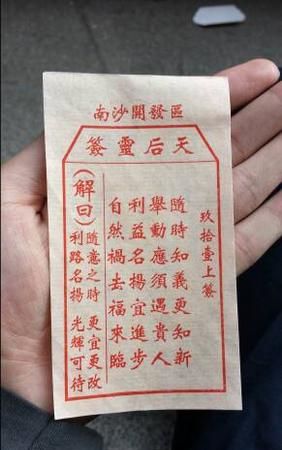 南沙開發區
天后靈簽
玖拾壹上簽
隨時知義更知新
舉動應須遇貴人
利益名揚宜進步
自然禍去福來臨
(解曰)
隨意之時 更宜更改
利路名揚 光輝可待